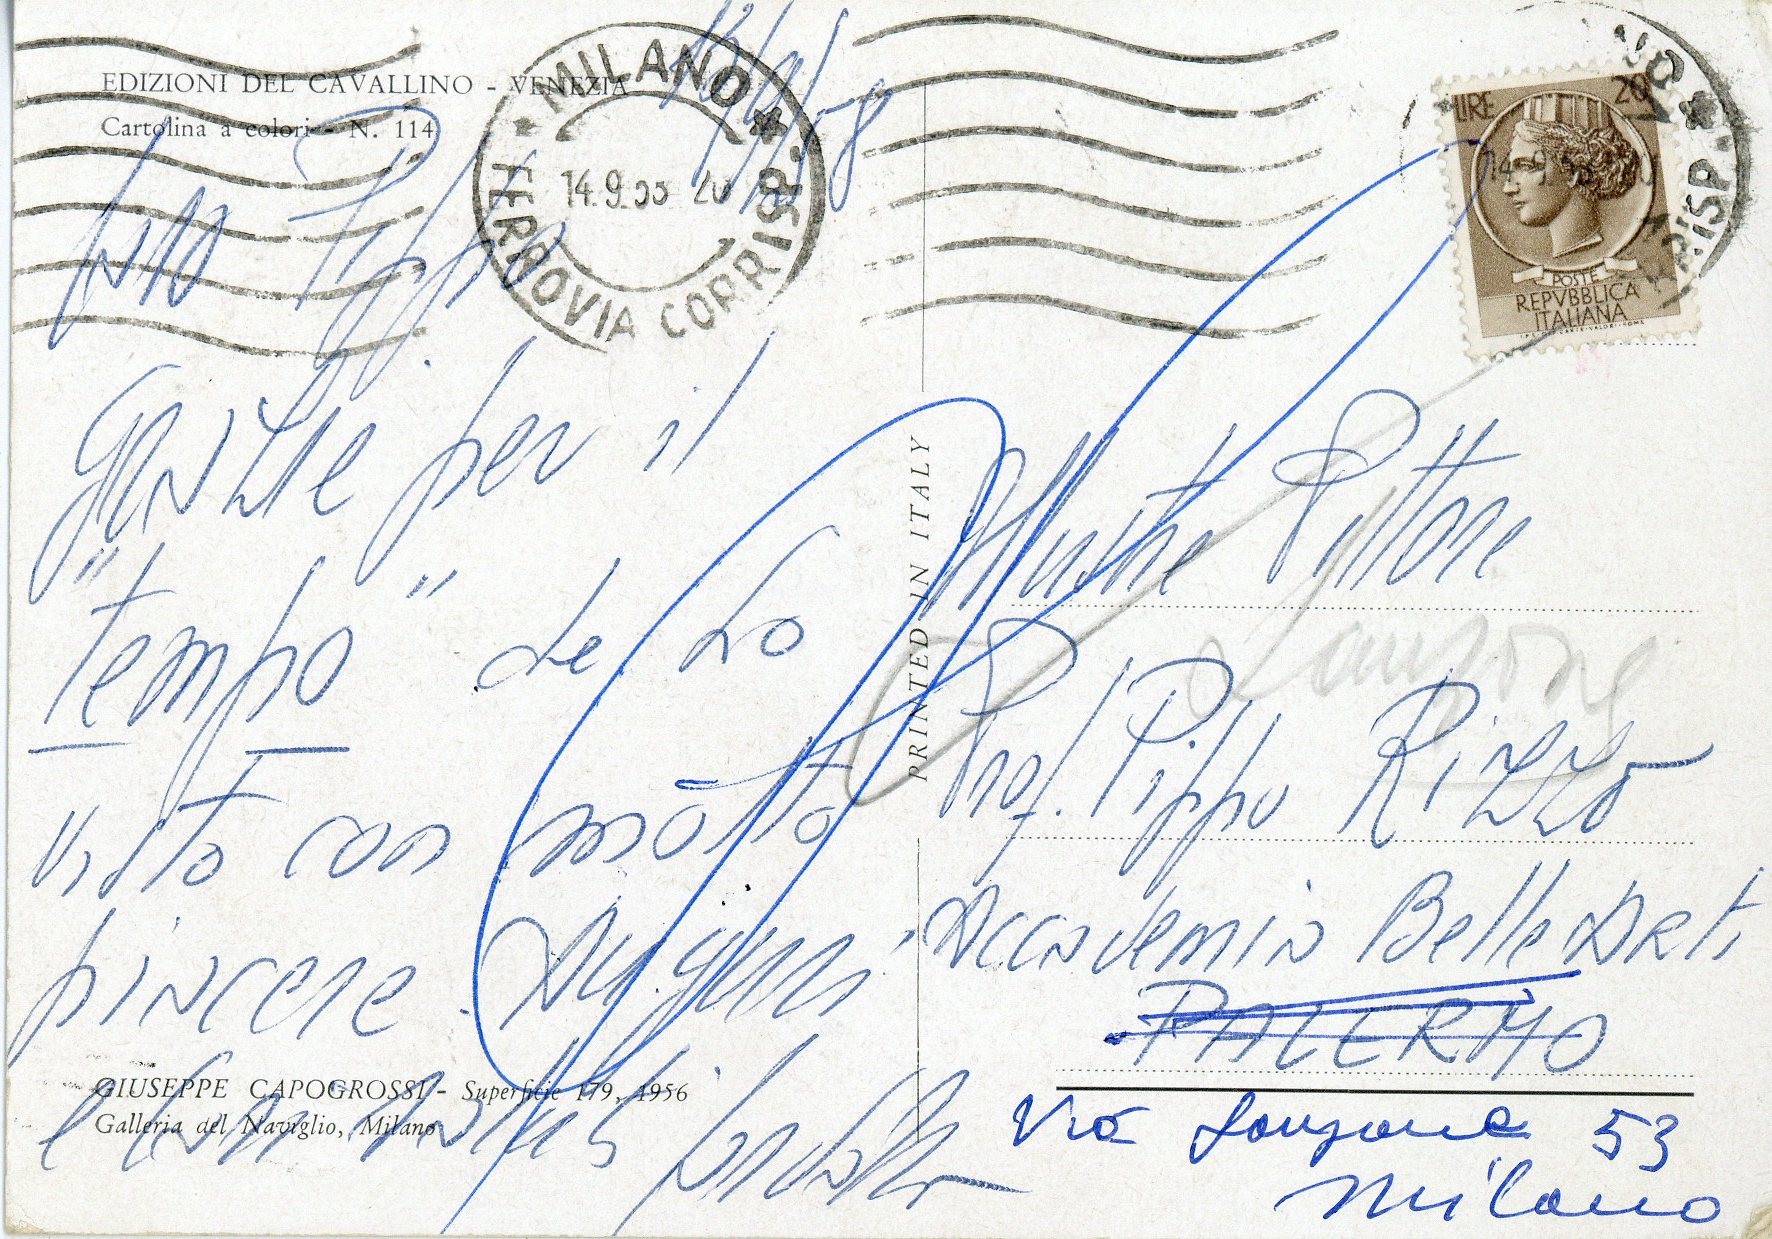 EDIZIONI DEL CAVALLINO - VENEZIA
Cartolina a colori - N. 114
13/9/58
MILANO
FERROVIA CORRISP.
14.9.58 20
LIRE 20
POSTE
REPVBBLICA
ITALIANA
14.9.58
RRISP.
Caro Pippo
Grazie per il
"tempo" che ho
visto con molto
piacere. Auguri
e buon
GIUSEPPE CAPOGROSSI - Superficie 179, 1956
Galleria del Naviglio, Milano
PRINTED IN ITALY
Illustre Pittore
Lanzone
Prof. Pippo Rizzo
Accademia Belle Arti
PALERMO
Via Lanzone 53
Milano